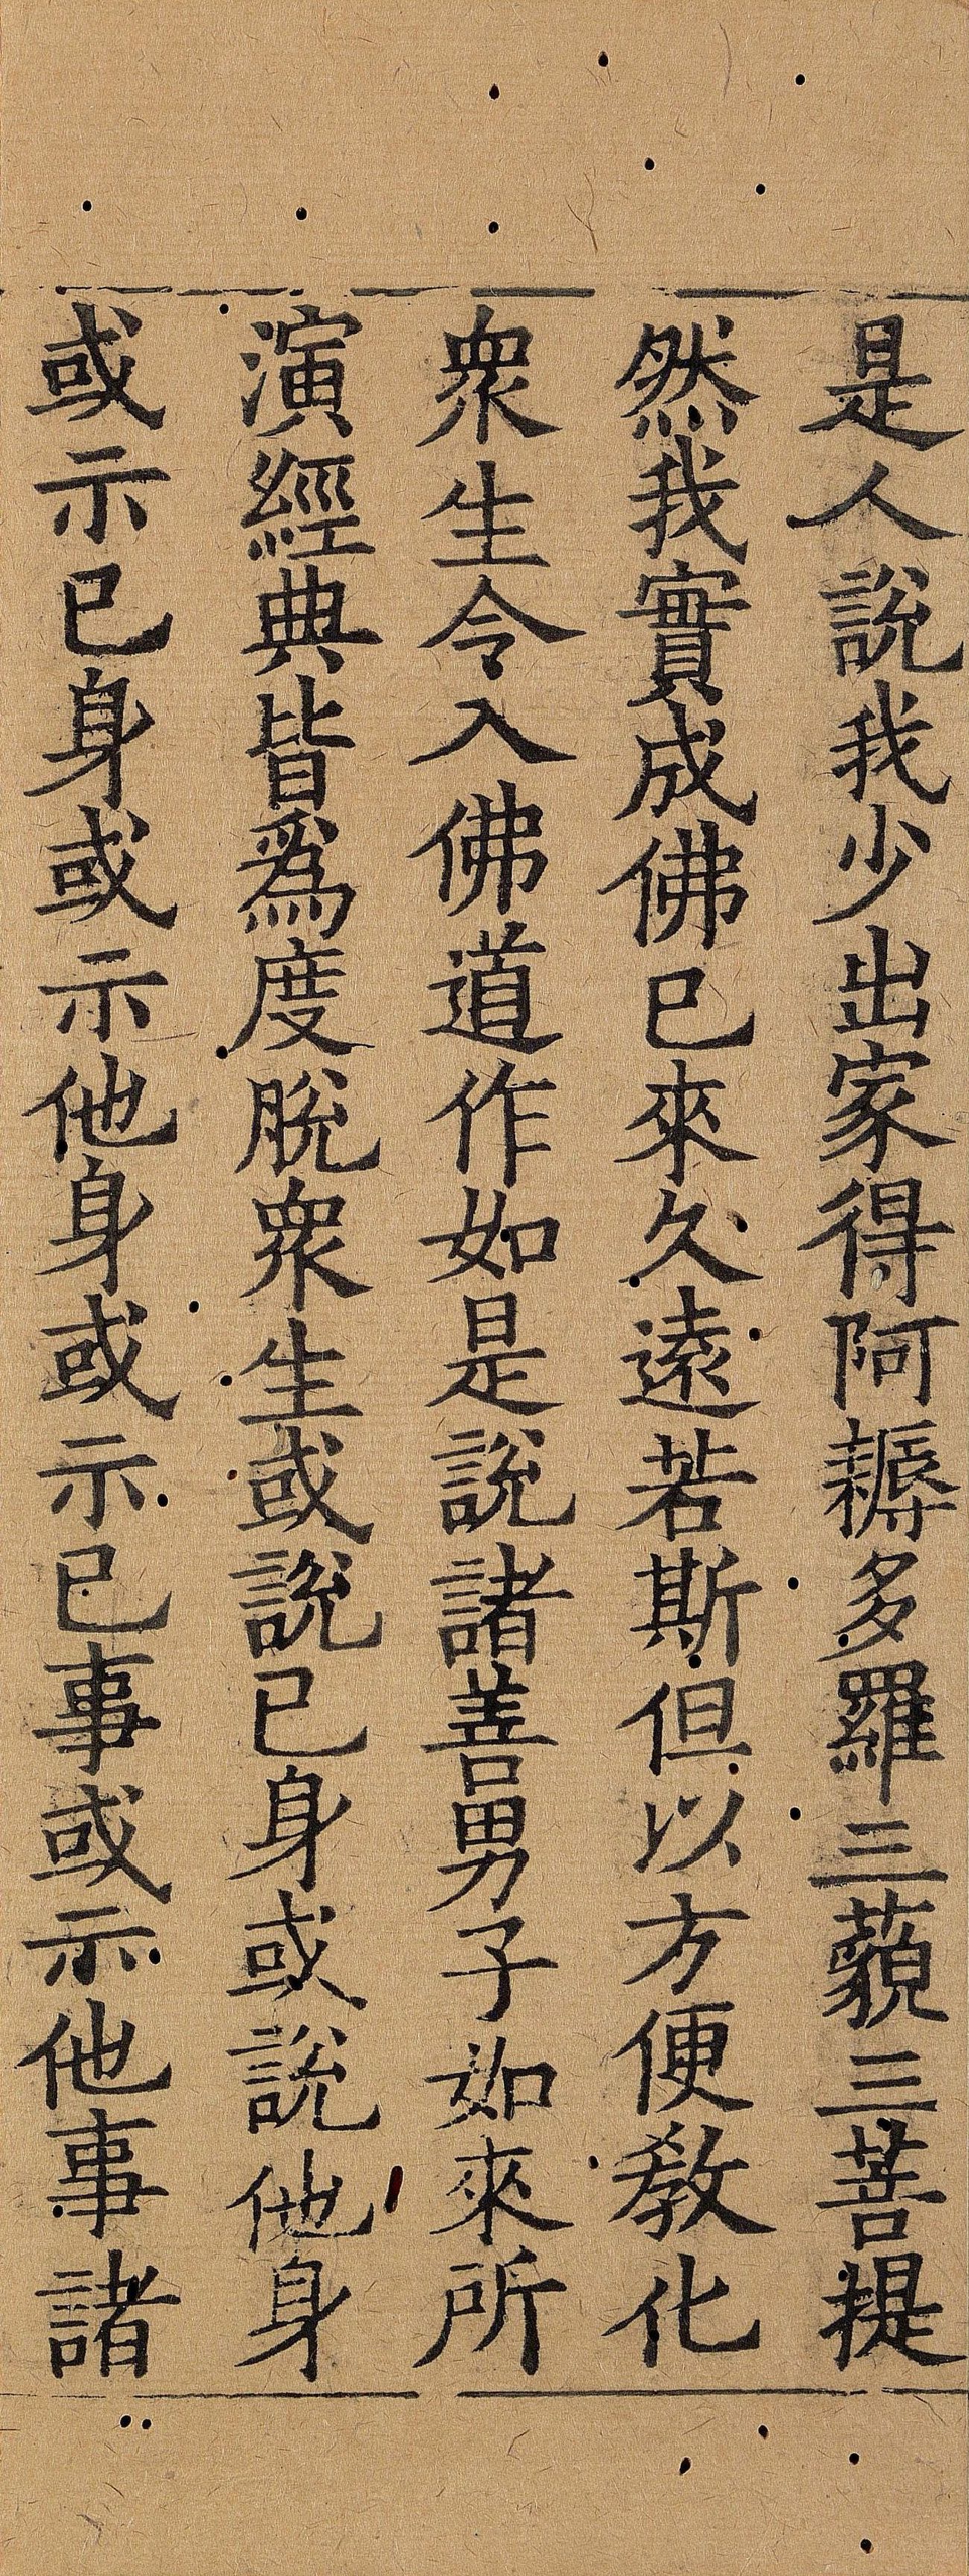 是人說我少出家得阿耨多羅三藐三菩提
然我實成佛已來久遠若斯但以方便教化
衆生令入佛道作如是說諸善男子如來所
演經典皆爲度脫衆生或說已身或說他身
或示已身或示他身或示已事或示他事諸